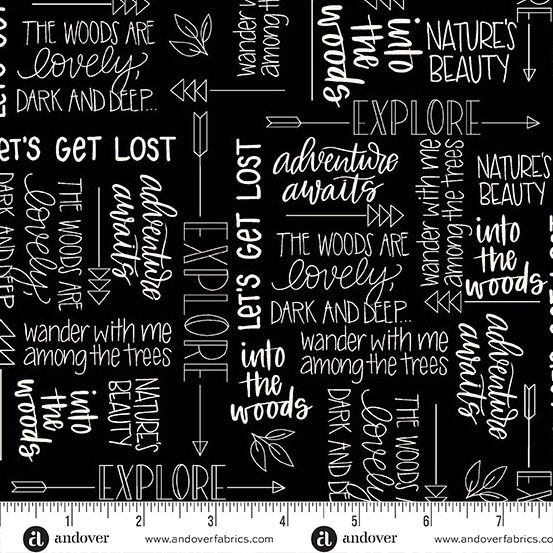 LET'S GO
THE WOODS ARE
lovely,
DARK AND DEEP...
wander with me
among the trees
into
the
woods
NATURE'S
BEAUTY
EXPLORE
LET'S GET LOST
adventure
awaits
wander with me
among the trees
NATURE'S
BEAUTY
into
the
woods
DARK AND DEEP
lovely,
THE WOODS ARE
adventure
awaits
EXPLORE
LET'S GET LOST
THE WOODS ARE
lovely,
DARK AND DEEP...
wander with me
among the trees
wander with me
among the trees
into
the
woods
adventure
awaits
into
the
woods
NATURE'S
BEAUTY
DARK AND DE
lovely
THE WOODS
NATURE'S
BEAUTY
EXPLORE
1 2 3 4 5 6 7
a andover www.andoverfabrics.com a andover www.andoverfabrics.com